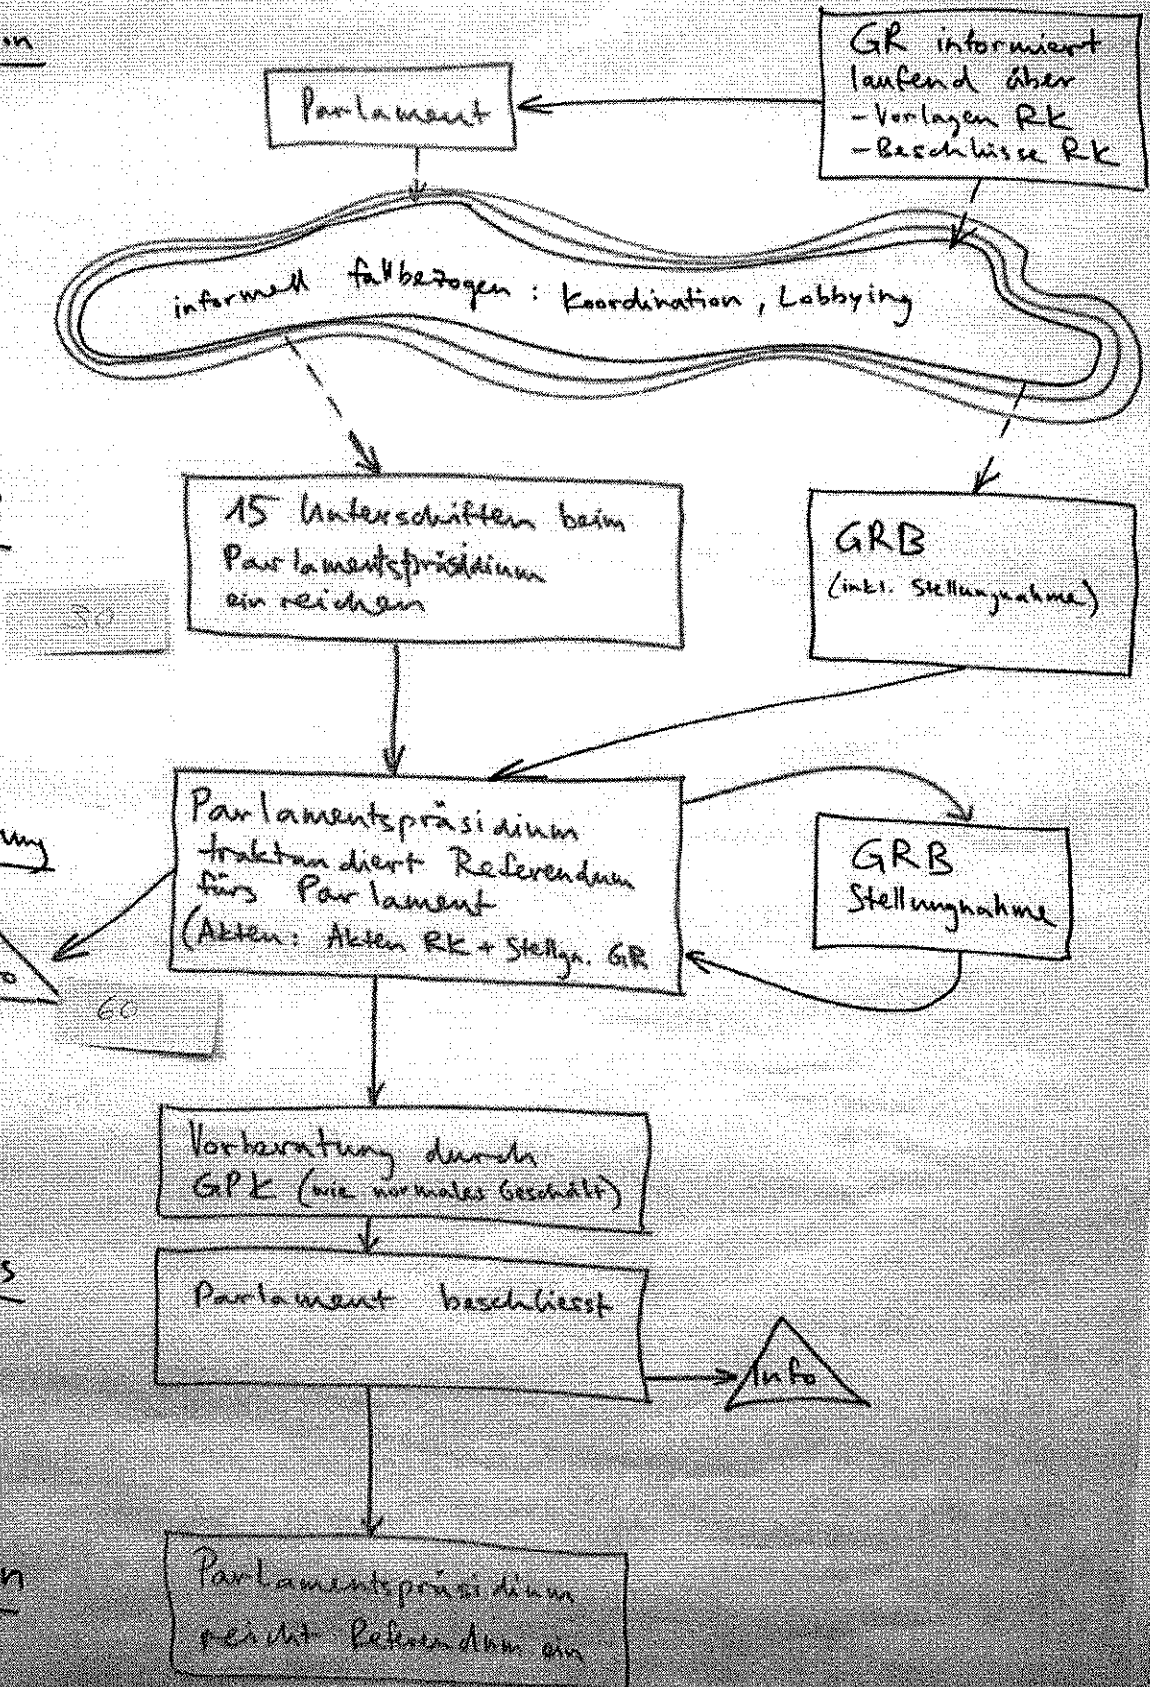 on
GR informiert
laufend über
- Vorlagen RK
- Beschlüsse RK
Parlament
informell fallbezogen : Koordination , Lobbying
15 Unterschriften beim
Parlamentspräsidium
einreichen
GRB
(inkl. Stellungnahme)
30
Parlamentspräsidium
traktandiert Referendum
fürs Parlament
(Akten: Akten RK + Stellgn. GR
GRB
Stellungnahme
ung
o
60
Vorberatung durch
GPK (wie normales Geschäft)
s
Parlament beschliesst
Info
n
Parlamentspräsidium
reicht Referendum ein